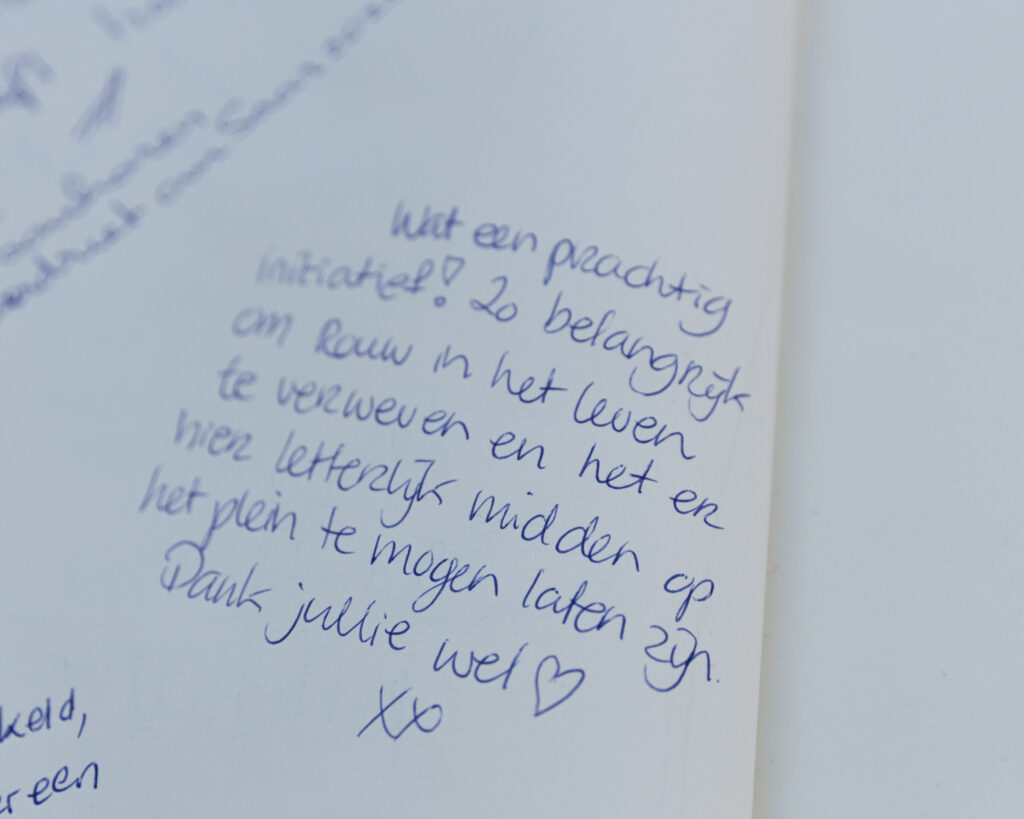 Wat een prachtig
initiatief! Zo belangrijk
om Rouw in het leven
te verweven en het er
hier letterlijk midden op
het plein te mogen laten zijn.
Dank jullie wel ♡
xx
keld,
er een